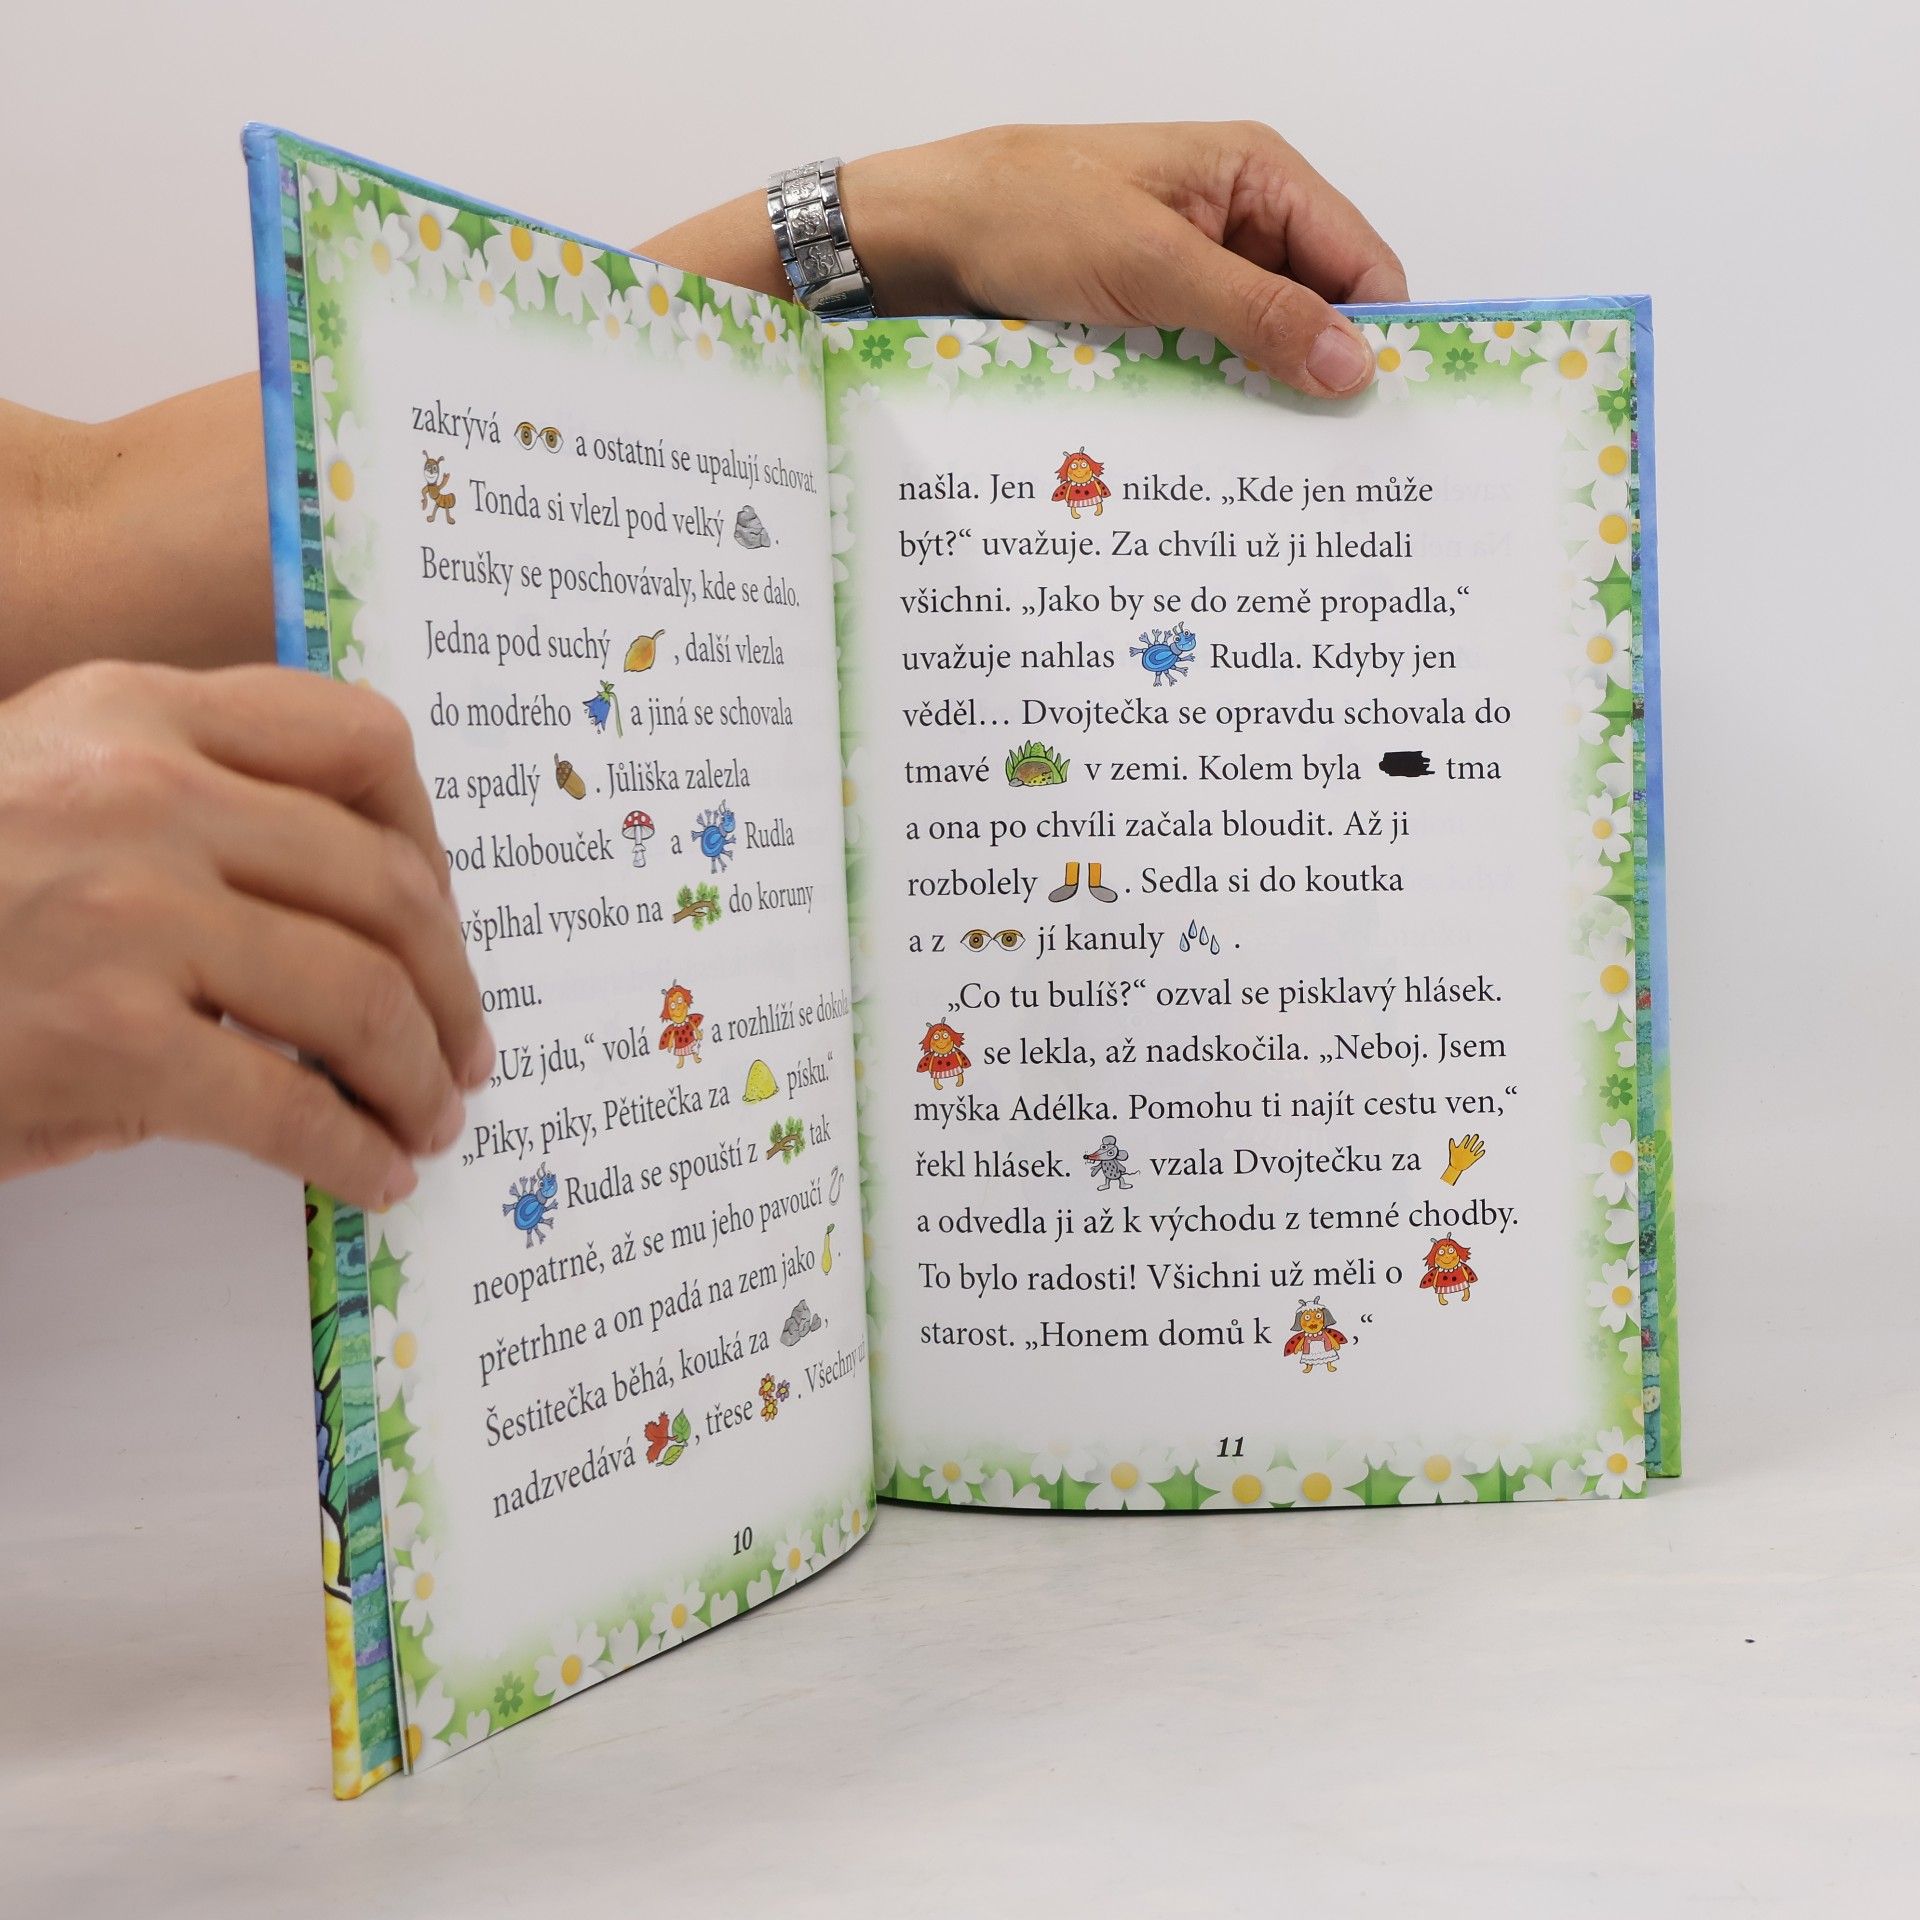 zakrývá a ostatní se upalují schovat.
Tonda si vlezl pod velký .
Berušky se poschovávaly, kde se dalo.
Jedna pod suchý , další vlezla
do modrého a jiná se schovala
za spadlý . Jůliška zalezla
pod klobouček a Rudla
všplhal vysoko na do koruny
omu.
„Už jdu,“ volá a rozhlíží se dokola.
„Piky, piky, Pětitečka za písku.“
Rudla se spouští z tak
neopatrně, až se mu jeho pavoučí
přetrhne a on padá na zem jako .
Šestitečka běhá, kouká za ,
nadzvedává , třese . Všechny už
10
našla. Jen nikde. „Kde jen může
být?“ uvažuje. Za chvíli už ji hledali
všichni. „Jako by se do země propadla,“
uvažuje nahlas Rudla. Kdyby jen
věděl… Dvojtečka se opravdu schovala do
tmavé v zemi. Kolem byla tma
a ona po chvíli začala bloudit. Až ji
rozbolely . Sedla si do koutka
a z jí kanuly .
„Co tu bulíš?“ ozval se pisklavý hlásek.
se lekla, až nadskočila. „Neboj. Jsem
myška Adélka. Pomohu ti najít cestu ven,“
řekl hlásek. vzala Dvojtečku za
a odvedla ji až k východu z temné chodby.
To bylo radosti! Všichni už měli o
starost. „Honem domů k ,“
11
GUESS